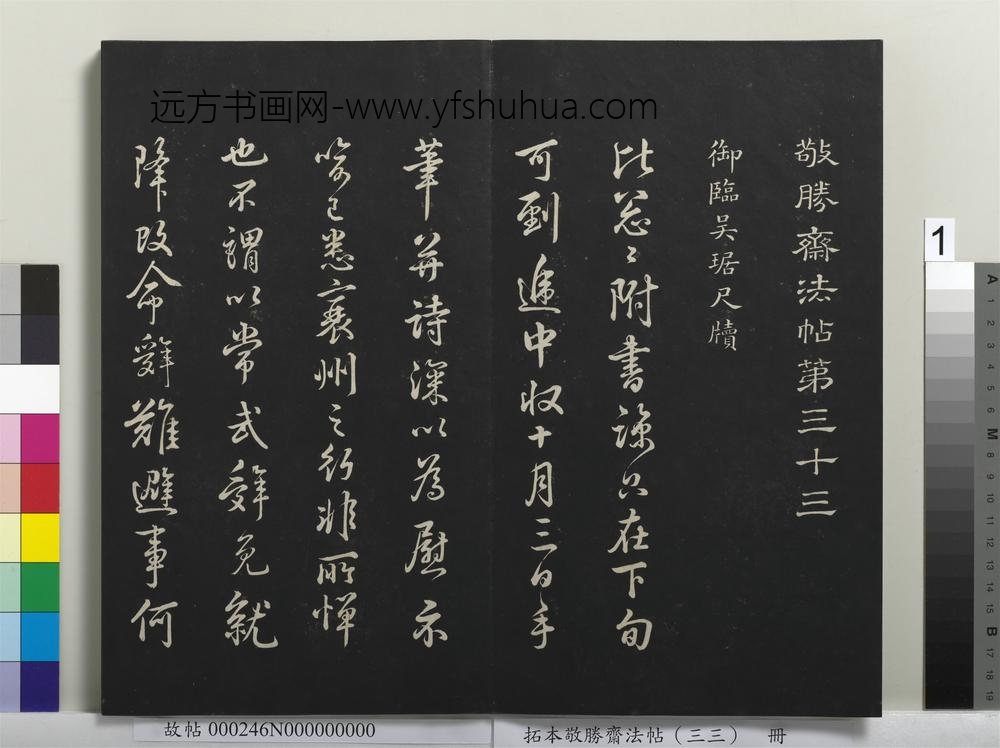 远方书画网-www.yfshuhua.com
敬勝齋法帖第三十三
御臨吴琚尺牘
比忩〻附書諒只在下旬
可到遞中收十月三日手
筆并詩深以為慰示
喻已悉襄州之行非所憚
也不謂以常式辤免就
降改命辤難避事何
1
A 1 2 3 4 5 6 M 8 9 10 11 12 13 14 15 B 17 18 19
故帖 000246N000000000
拓本敬勝齋法帖（三三） 冊